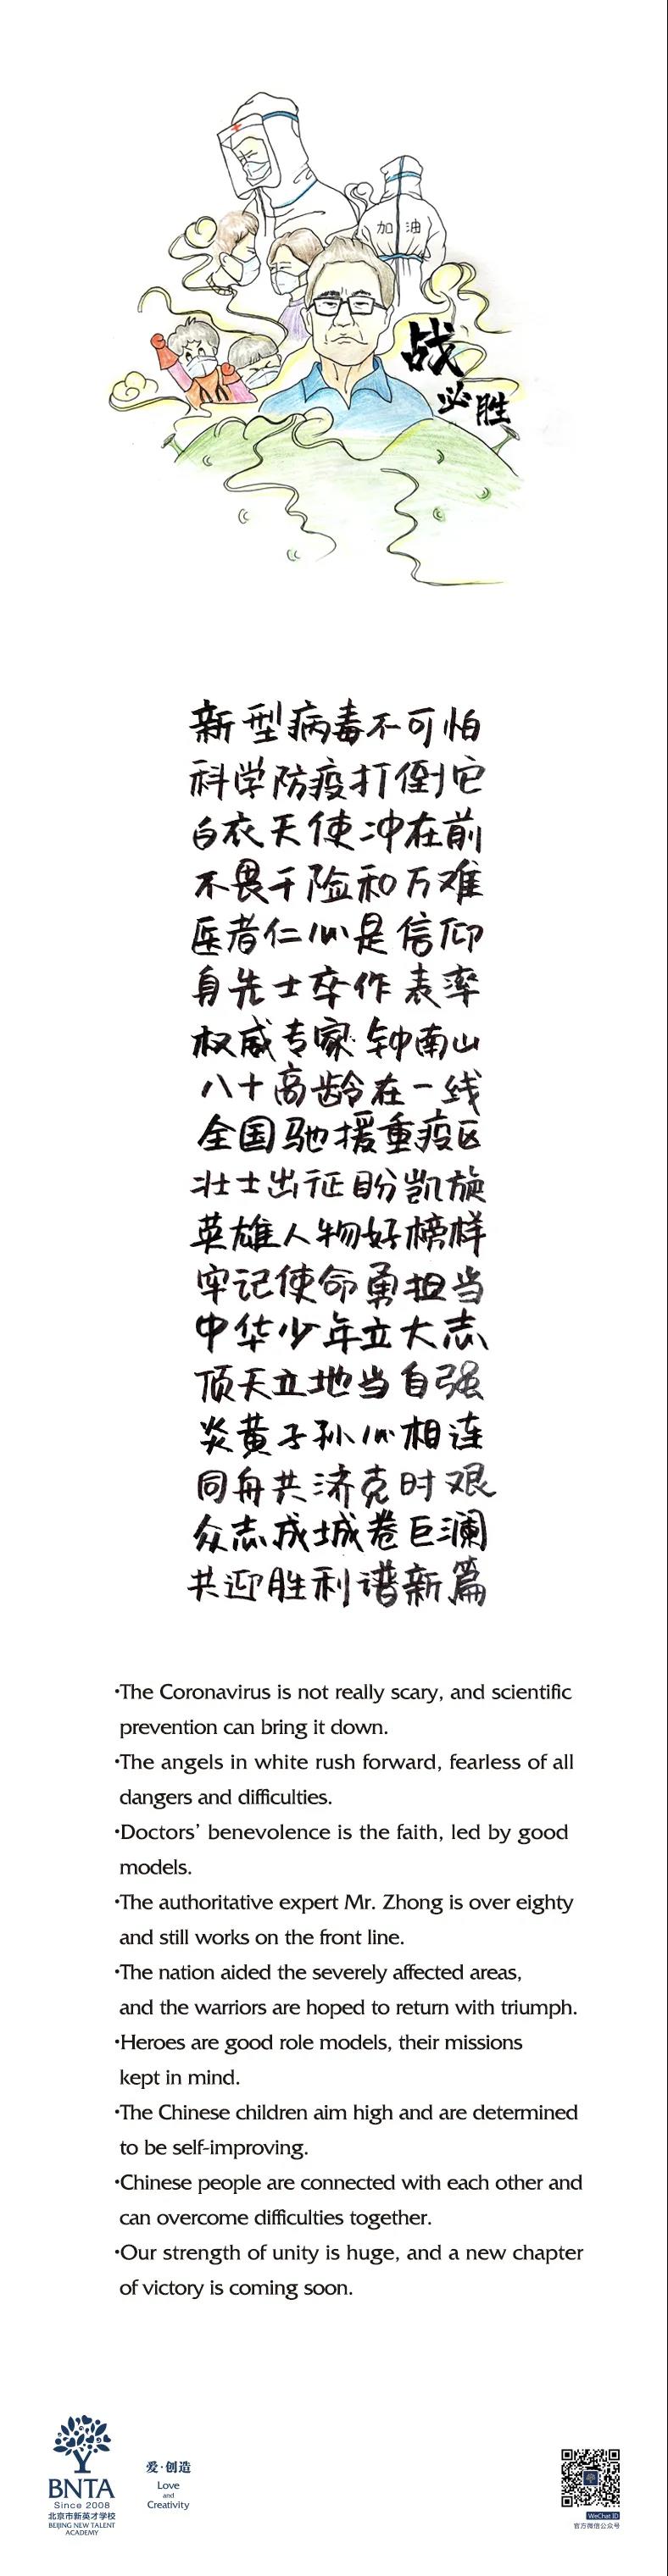 加油
战
必胜
新型病毒不可怕
科学防疫打倒它
白衣天使冲在前
不畏千险和万难
医者仁心是信仰
身先士卒作表率
权威专家钟南山
八十高龄在一线
全国驰援重疫区
壮士出征盼凯旋
英雄人物好榜样
牢记使命勇担当
中华少年立大志
顶天立地当自强
炎黄子孙心相连
同舟共济克时艰
众志成城卷巨澜
共迎胜利谱新篇
·The Coronavirus is not really scary, and scientific
prevention can bring it down.
·The angels in white rush forward, fearless of all
dangers and difficulties.
·Doctors’ benevolence is the faith, led by good
models.
·The authoritative expert Mr. Zhong is over eighty
and still works on the front line.
·The nation aided the severely affected areas,
and the warriors are hoped to return with triumph.
·Heroes are good role models, their missions
kept in mind.
·The Chinese children aim high and are determined
to be self-improving.
·Chinese people are connected with each other and
can overcome difficulties together.
·Our strength of unity is huge, and a new chapter
of victory is coming soon.
BNTA
Since 2008
北京市新英才学校
BEIJING NEW TALENT
ACADEMY
爱·创造
Love
and
Creativity
WeChat ID
官方微信公众号